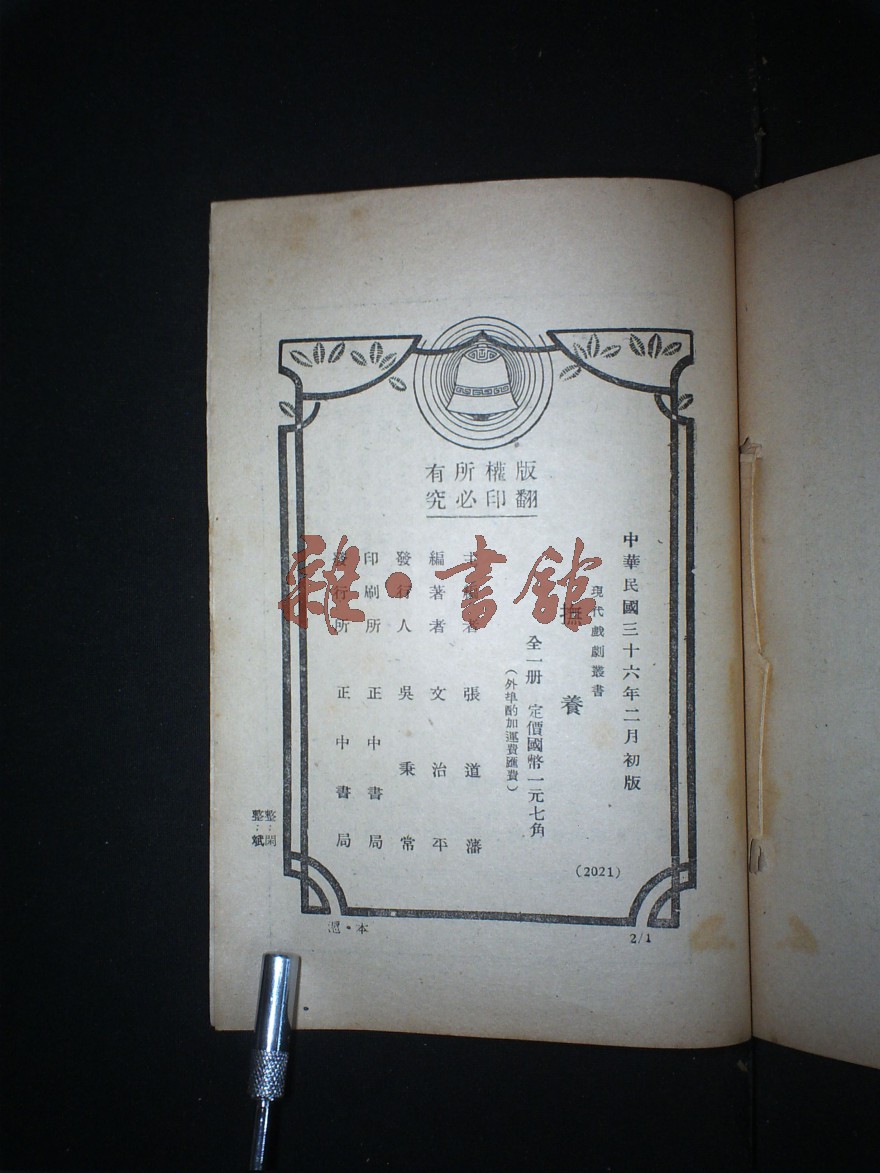 版權所有
翻印必究
中華民國三十六年二月初版
現代戲劇叢書
撫養
全一册 定價國幣一元七角
(外埠酌加運費匯費)
主編者 張道藩
編著者 文治平
發行人 吳秉常
印刷所 正中書局
發行所 正中書局
(2021)
整:閑
整:斌
滬・本
2/1
雜·書館